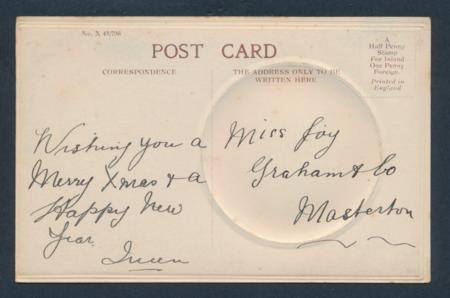 No. X 49/706
POST CARD
CORRESPONDENCE
THE ADDRESS ONLY TO BE
WRITTEN HERE
A
Half Penny
Stamp
For Inland
One Penny
Foreign.
Printed in
England
Wishing you a
Merry Xmas & a
Happy New
Year.
Miss Joy
Graham & Co
Masterton